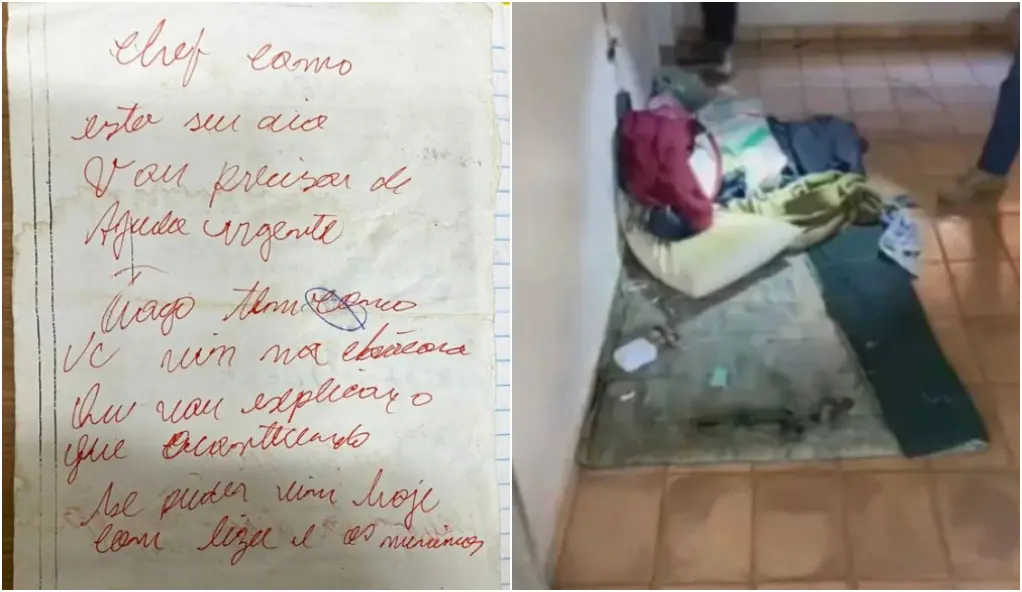 chef como
esta seu dia
Vou precisar de
Ajuda urgente
Tiago tem como
vc vim na
Que vou explicar o
que acontecendo
se puder vim hoje
com liza e os meninos